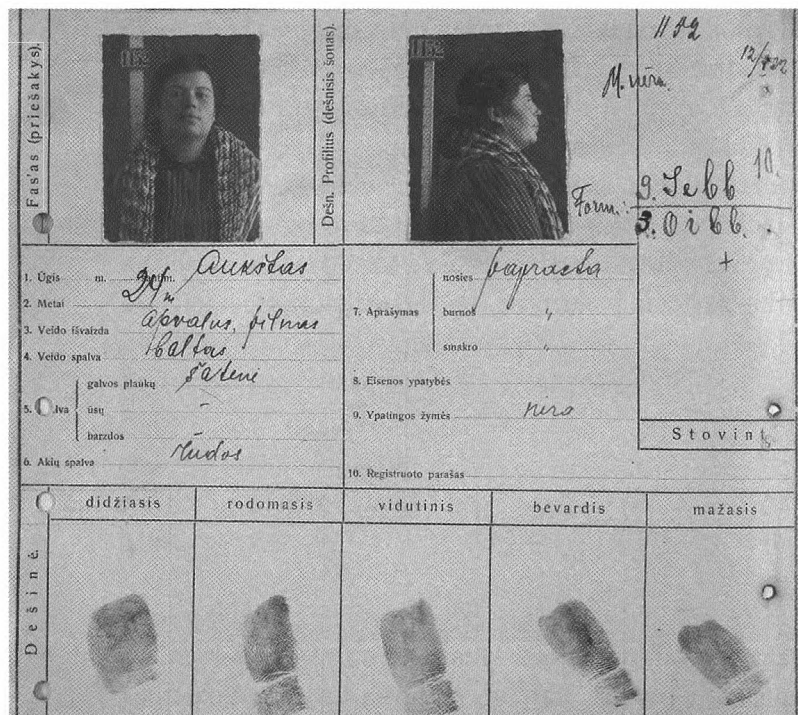 Fas'as (priešakys).
1152
Dešn. Profilius (dešnisis šonas).
1152
1152
M. nėra
12/
Form.:
10.
+
1. Ūgis m. centim. Aukštas
2. Metai 24 m
3. Veido išvaizda apvalus, pilnas
4. Veido spalva baltas
galvos plaukų šatenė
5. lva ūsų -
barzdos
6. Akių spalva rudos
7. Aprašymas
nosies paprasta
burnos "
smakro "
8. Eisenos ypatybės
9. Ypatingos žymės nėra
10. Registruoto parašas
Stovint
didžiasis rodomasis vidutinis bevardis mažasis
Dešinė.